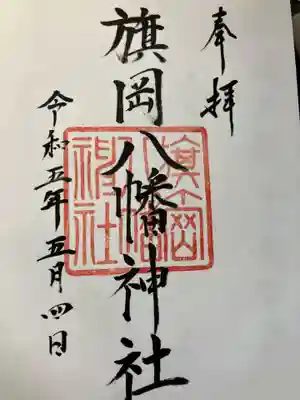 奉拝
旗岡八幡神社
令和五年五月四日
旗岡八幡神社